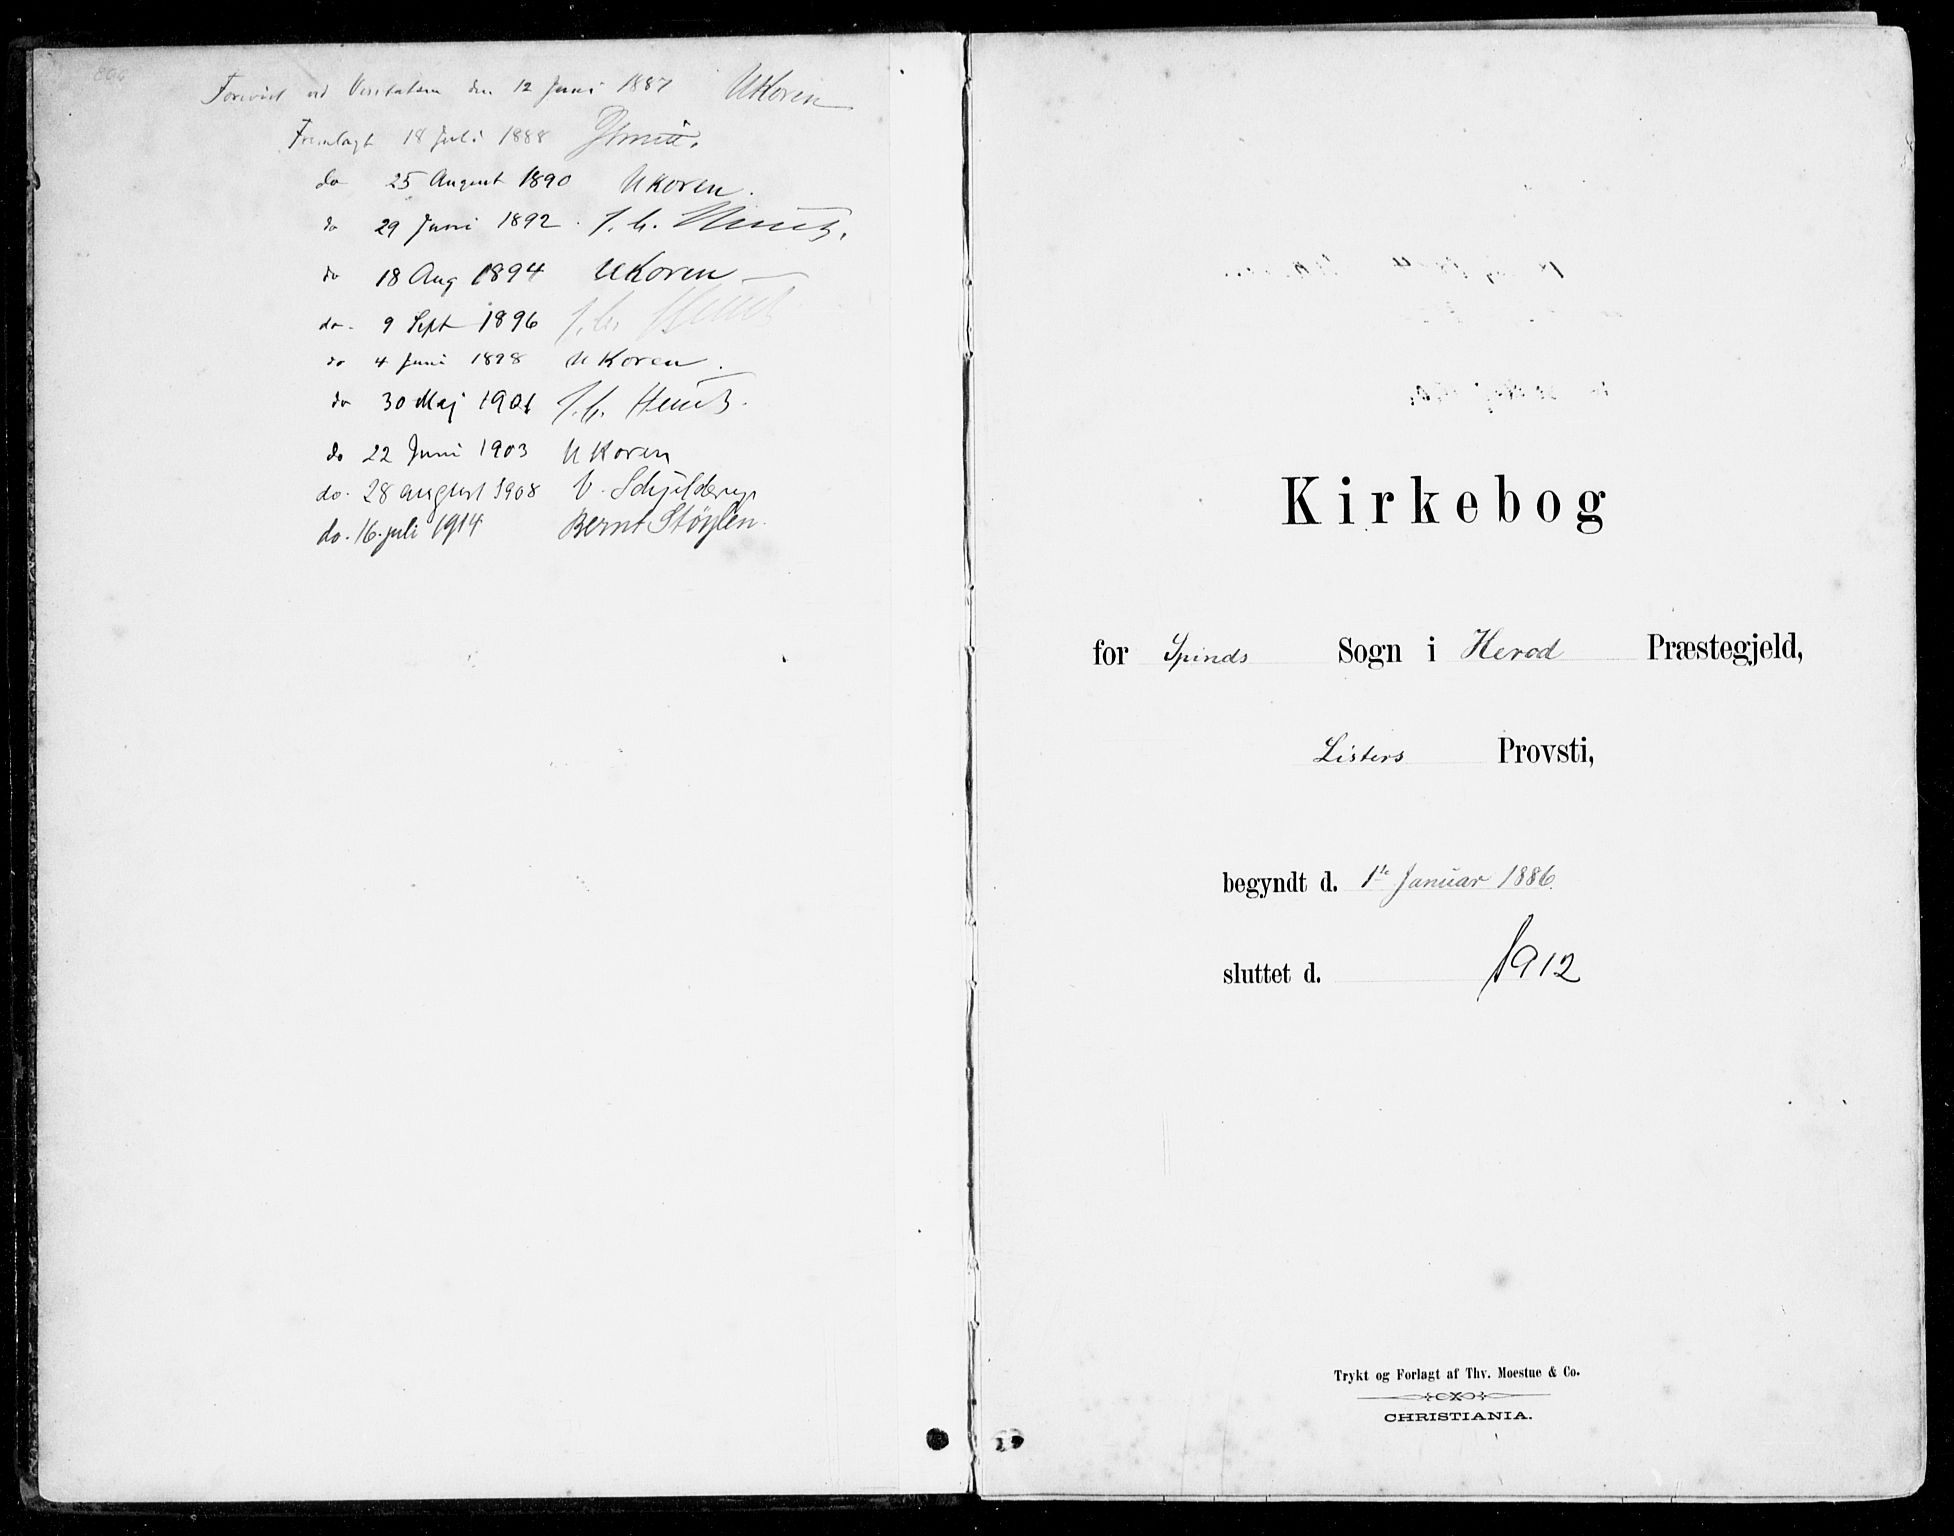 Forevist ved Visitatsen den 12 Juni 1887 UKoren
Fremlagt 18 Juli 1888
do 25 August 1890 UKoren.
do 29 Juni 1892. J. C. Heuch.
do 18 Aug 1894 UKoren
do. 9 Sept 1896 J. C. Heuch
do 4 Juni 1898 UKoren.
do 30 Maj 1901 J. C. Heuch.
do 22 Juni 1903 UKoren
do. 28 august 1908 V. Schjelderup
do. 16. juli 1914 Bernt Støylen.
Kirkebog
for Spinds Sogn i Herad Præstegjeld,
Listers Provsti,
begyndt d. 1ste Januar 1886.
sluttet d. 1912
Trykt og Forlagt af Thv. Moestue & Co.
CHRISTIANIA.